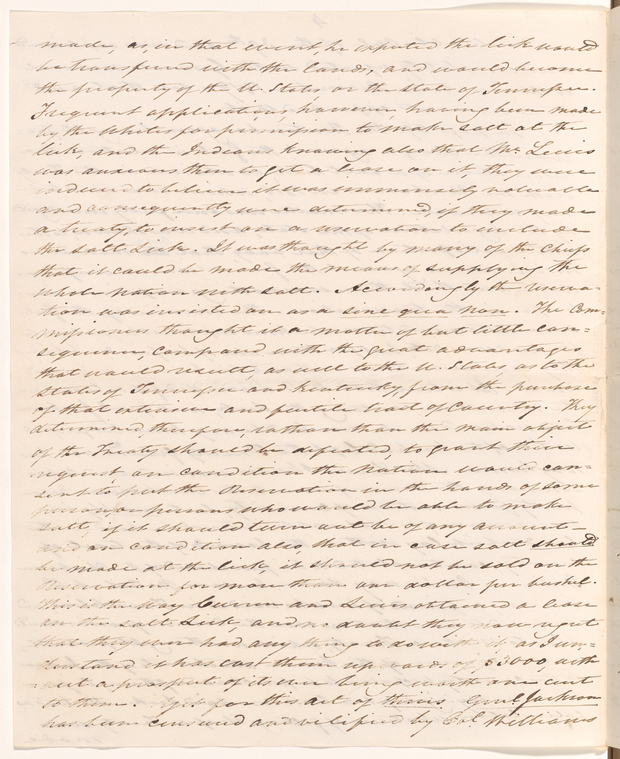 made, as, in that event, he expected the lick would
be transferred with the lands, and would become
the property of the U. States or the state of Tennessee.
Frequent applications, however, having been made
by the whites for permission to make salt at the
lick, and the Indians knowing also that Mr. Lewis
was anxious then to get a lease on it, they were
induced to believe it was immensely valuable
and consequently were determined, if they made
a treaty, to insist on a reservation to include
the salt Lick. It was thought by many of the Chiefs
that it could be made the means of supplying the
whole nation with salt. Accordingly the reserva-
tion was insisted on as a sine qua non. The Com-
missioners thought it a matter of but little con-
sequence, compared with the great advantages
that would result, as well to the U. States as to the
states of Tennessee and Kentucky, from the purchase
of that extensive and fertile tract of Country. They
determined, therefore, rather than the main object
of the Treaty should be defeated, to grant their
request, on condition the Nation would con-
sent to put the Reservation in the hands of some
person, or persons who would be able to make
salt, if it should turn out be of any account—
and on condition also, that in case salt should
be made at the lick, it should not be sold on the
Reservation for more than one dollar per bushel.
This is the way Curren and Lewis obtained a lease
on the Salt Lick, and no doubt they now regret
that they ever had any thing to do with it as I un-
derstand it has cost them upwards of $3000, with
out a prospect of its ever being worth one cent
to them. Yet for this act of theirs Genl. Jackson
has been censured and vilified by Col. Williams